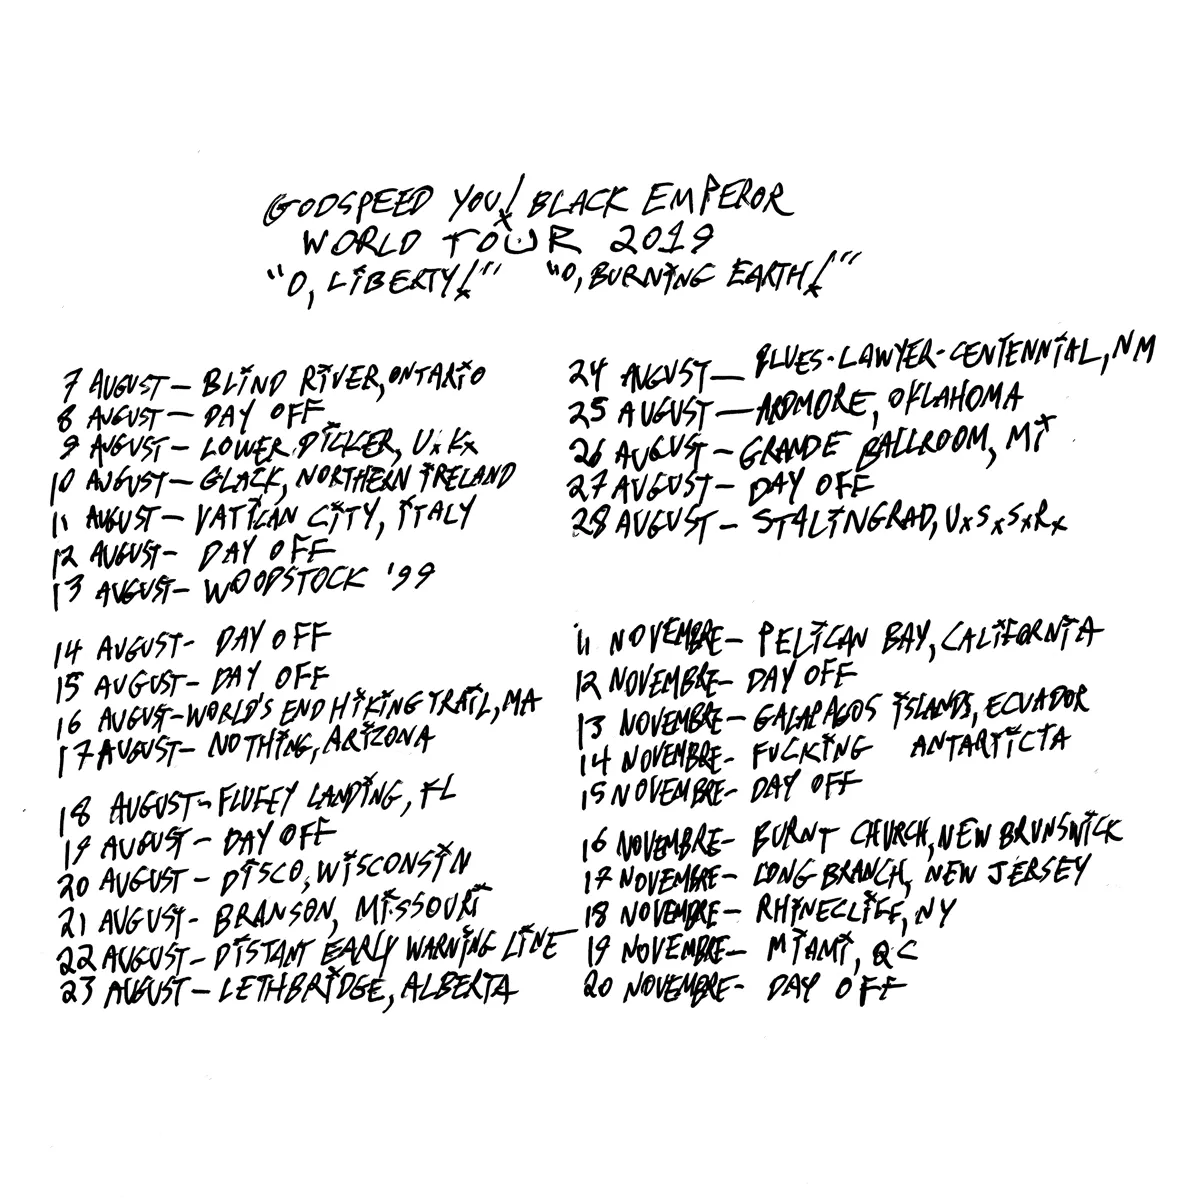 GODSPEED YOU! BLACK EMPEROR
WORLD TOUR 2019
"O, LIBERTY!" "O, BURNING EARTH!"
7 AUGUST – BLIND RIVER, ONTARIO
8 AUGUST – DAY OFF
9 AUGUST – LOWER DICKER, UxKx
10 AUGUST – GLACK, NORTHERN IRELAND
11 AUGUST – VATICAN CITY, ITALY
12 AUGUST – DAY OFF
13 AUGUST – WOODSTOCK '99
14 AUGUST – DAY OFF
15 AUGUST – DAY OFF
16 AUGUST – WORLD'S END HIKING TRAIL, MA
17 AUGUST – NOTHING, ARIZONA
18 AUGUST – FLUFFY LANDING, FL
19 AUGUST – DAY OFF
20 AUGUST – DISCO, WISCONSIN
21 AUGUST – BRANSON, MISSOURI
22 AUGUST – DISTANT EARLY WARNING LINE
23 AUGUST – LETHBRIDGE, ALBERTA
24 AUGUST – BLUES-LAWYER-CENTENNIAL, NM
25 AUGUST – ARDMORE, OKLAHOMA
26 AUGUST – GRANDE BALLROOM, MI
27 AUGUST – DAY OFF
28 AUGUST – STALINGRAD, UxSxSxRx
11 NOVEMBRE – PELICAN BAY, CALIFORNIA
12 NOVEMBRE – DAY OFF
13 NOVEMBRE – GALAPAGOS ISLANDS, ECUADOR
14 NOVEMBRE – FUCKING ANTARTICTA
15 NOVEMBRE – DAY OFF
16 NOVEMBRE – BURNT CHURCH, NEW BRUNSWICK
17 NOVEMBRE – LONG BRANCH, NEW JERSEY
18 NOVEMBRE – RHINECLIFF, NY
19 NOVEMBRE – MIAMI, QC
20 NOVEMBRE – DAY OFF